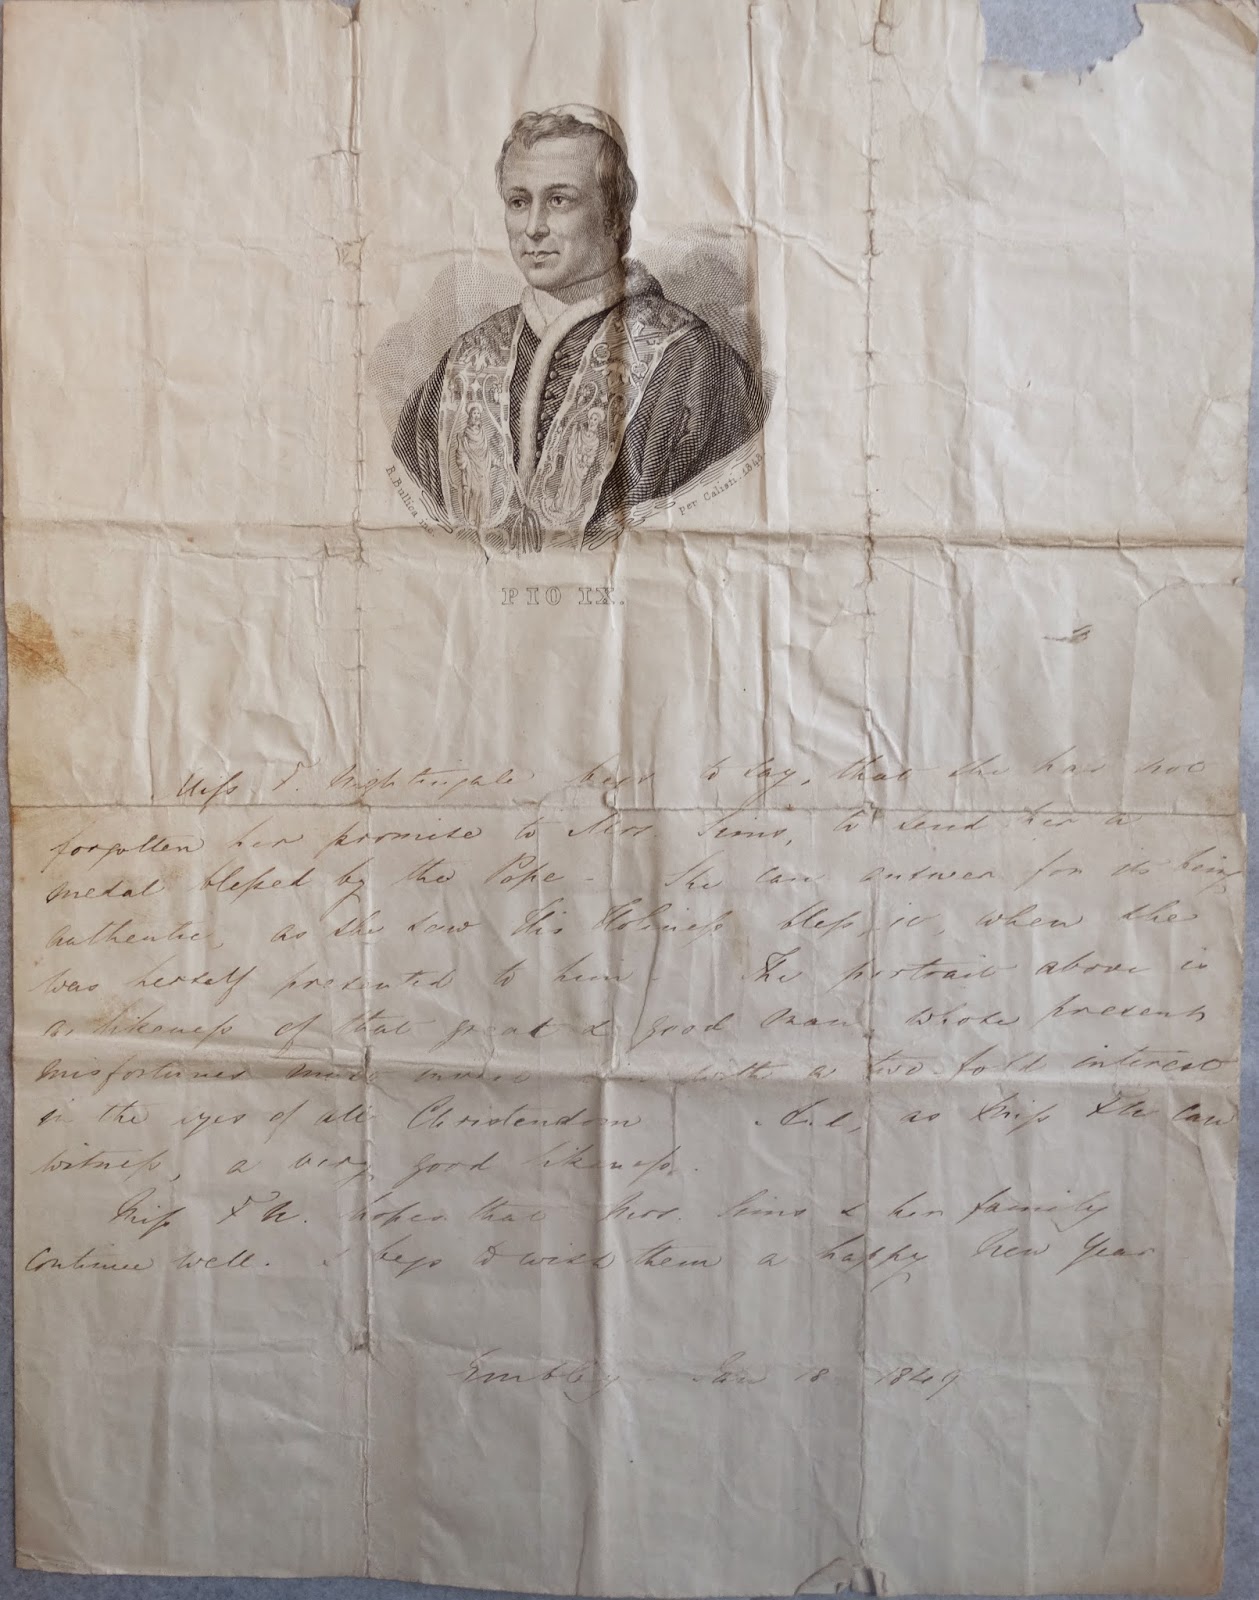 R. Bullica inc.
per Calisti. 1848
PIO IX.
Miss F. Nightingale begs to say, that she has not
forgotten her promise to Mrs. Sims, to send her a
medal blessed by the Pope - She can answer for its being
authentic, as she saw His Holiness bless it, when she
was herself presented to him - The portrait above is
a likeness of that great & good man, whose present
misfortunes must invest him with a two fold interest
in the eyes of all Christendom as Miss F N can
witness, a very good likeness.
Miss F N. hopes that Mrs. Sims & her family
continue well. & begs to wish them a happy New Year
Embley - Jan 18 1849